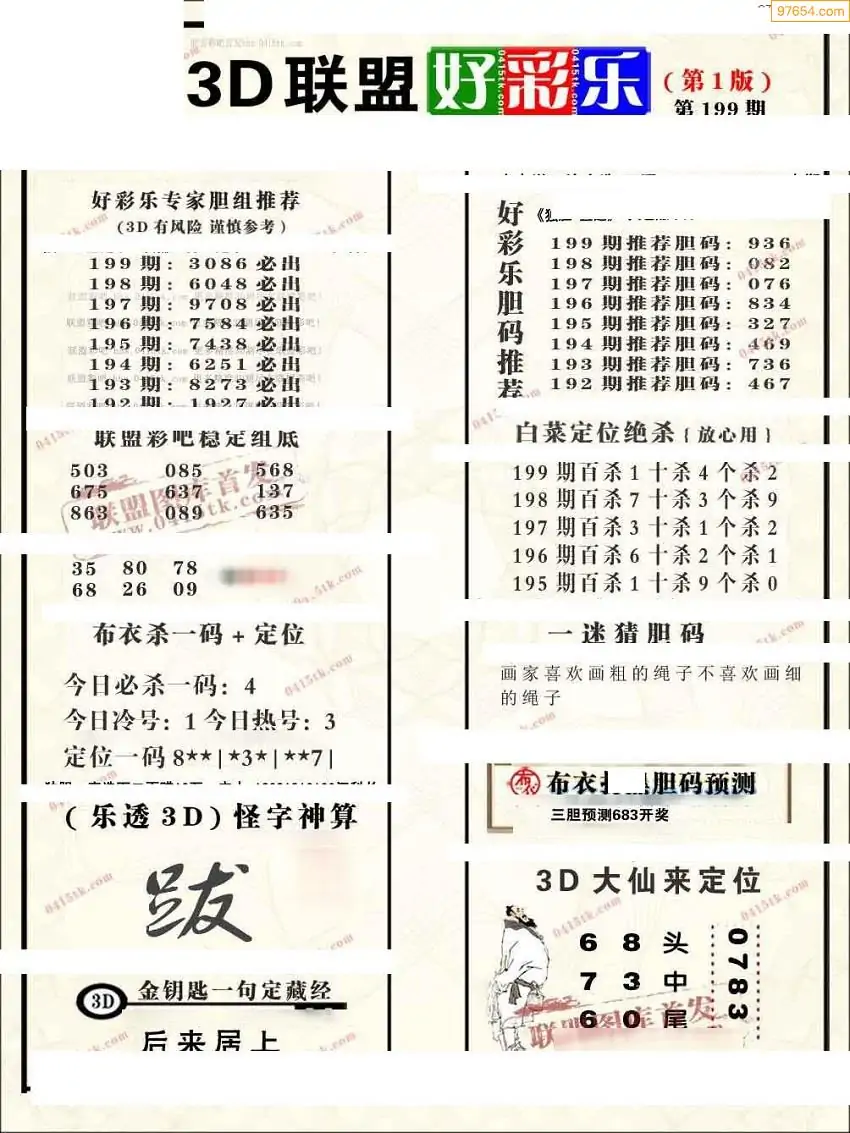 97654.com
3D联盟好彩乐(第1版)
第199期
好彩乐专家胆组推荐
(3D有风险 谨慎参考)
199期: 3086必出
198期: 6048必出
197期: 9708必出
196期: 7584必出
195期: 7438必出
194期: 6251必出
193期: 8273必出
192期: 1927必出
联盟彩吧稳定组底
503 085 568
675 637 137
863 089 635
35 80 78
68 26 09
布衣杀一码+定位
今日必杀一码: 4
今日冷号: 1 今日热号: 3
定位一码8**|*3*|**7|
(乐透3D)怪字神算
跋
3D 金钥匙一句定藏经
后来居上
好彩乐胆码推荐
199期推荐胆码: 936
198期推荐胆码: 082
197期推荐胆码: 076
196期推荐胆码: 834
195期推荐胆码: 327
194期推荐胆码: 469
193期推荐胆码: 736
192期推荐胆码: 467
白菜定位绝杀{放心用}
199期百杀1十杀4个杀2
198期百杀7十杀3个杀9
197期百杀3十杀1个杀2
196期百杀6十杀2个杀1
195期百杀1十杀9个杀0
一迷猜胆码
画家喜欢画粗的绳子不喜欢画细
的绳子
布衣 胆码预测
三胆预测683开奖
3D大仙来定位
6 8 头
7 3 中
6 0 尾
0783
联盟图库首发
www.0415tk.com
0415tk.com